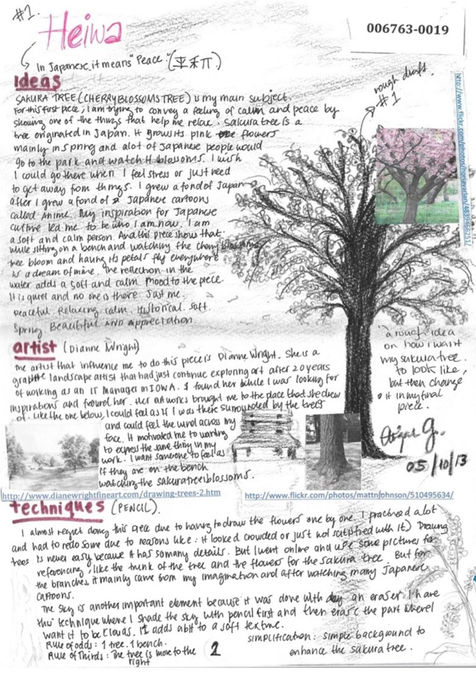 #1
Heiwa
006763-0019
In Japanese, it means "Peace."
rough draft
#1
Ideas
SAKURA TREE (CHERRY BLOSSOMS TREE) is my main subject.
For this first piece, I am trying to convey a feeling of calm and peace by
showing one of the things that help me relax. Sakura tree is a
tree originated in Japan. It grows its pink flowers
mainly in spring and alot of Japanese people would
go to the park and watch it blossoms. I wish
I could go there when I feel stress or just need
to get away from things. I grew a fond of Japan
after I grew a fond of Japanese cartoons
called Anime. My inspiration for Japanese
culture led me to be who I am now. I am
a soft and calm person. And this piece show that
while sitting on a bench and watching the cherry blossoms
tree bloom and having its petals fly everywhere
is a dream of mine. The reflection in the
water adds a soft and calm mood to the piece.
It is quiet and no one is there. Just me.
Peaceful Relaxing calm Historical soft
Spring Beautiful and appreciation
a rough idea
on how i want
my sakura tree
to look like,
but then change
it in my final
piece.
05/10/13
artist (Dianne Wright)
The artist that influence me to do this piece is Dianne Wright. She is a
graphite landscape artist that had just continue exploring art after 20 years
of working as an IT manager in IOWA. I found her while I was looking for
inspirations and found her. Her artworks brought me to the place that she drew
of. Like the one below, I could feel as if I was there surrounded by the trees
and could feel the wind across my
face. It motivated me to wanting
to express the same thing in my
work. I want someone to feel as
if they are on the bench
watching the sakura tree blossoms.
http://www.dianewrightfineart.com/drawing-trees-2.htm
http://www.flickr.com/photos/mattnjohnson/510495634/
techniques (PENCIL).
I almost regret doing this piece due to having to draw the flowers one by one. I practiced alot
and had to redo some due to reasons like: it looked crowded or just not satisfied with it) Drawing
trees is never easy because it has so many details. But I went online and use some pictures for
referencing, like the trunk of the tree and the flowers for the sakura tree. But for
the branches, it mainly came from my imagination and after watching many Japanese
cartoons.
The sky is another important element because it was done with an eraser. I have
this technique where I shade the sky with pencil first and then erase the part where I
want it to be clouds. It adds a soft texture.
Rule of odds: 1 tree. 1 bench.
Rule of Thirds: The tree is more to the
right
1
simplification: simple background to
enhance the sakura tree.